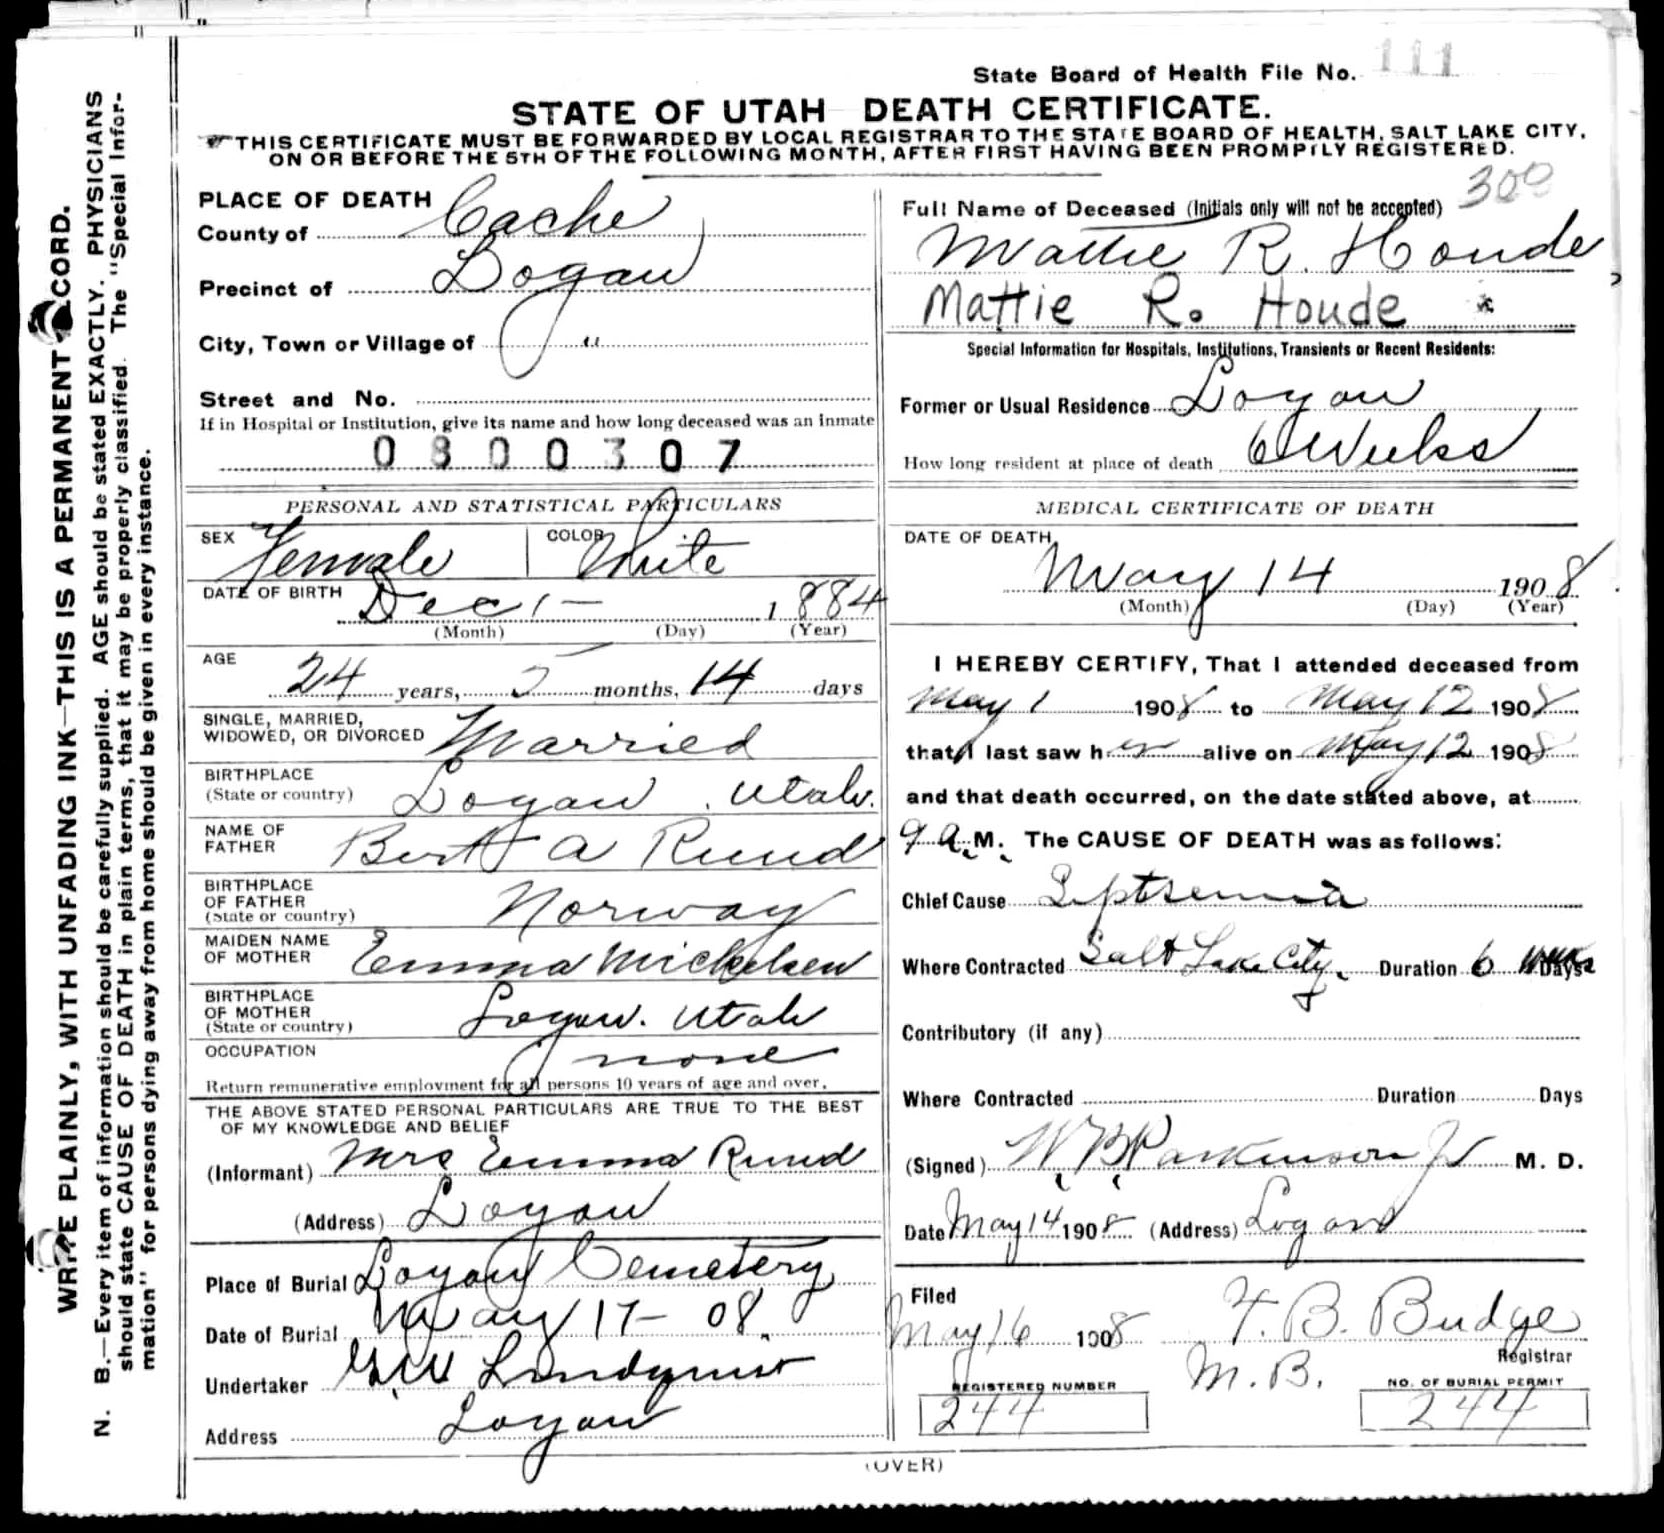 State Board of Health File No. 111
STATE OF UTAH DEATH CERTIFICATE.
THIS CERTIFICATE MUST BE FORWARDED BY LOCAL REGISTRAR TO THE STATE BOARD OF HEALTH, SALT LAKE CITY,
ON OR BEFORE THE 5TH OF THE FOLLOWING MONTH, AFTER FIRST HAVING BEEN PROMPTLY REGISTERED.
WRITE PLAINLY, WITH UNFADING INK—THIS IS A PERMANENT RECORD.
N. B.—Every item of information should be carefully supplied. AGE should be stated EXACTLY. PHYSICIANS
should state CAUSE OF DEATH in plain terms, that it may be properly classified. The "Special Infor-
mation" for persons dying away from home should be given in every instance.
PLACE OF DEATH
County of Cache
Precinct of Logan
City, Town or Village of "
Street and No.
If in Hospital or Institution, give its name and how long deceased was an inmate
0800307
PERSONAL AND STATISTICAL PARTICULARS
SEX Female COLOR White
DATE OF BIRTH Dec 1- 1884
(Month) (Day) (Year)
AGE
24 years, 5 months, 14 days
SINGLE, MARRIED,
WIDOWED, OR DIVORCED Married
BIRTHPLACE
(State or country) Logan. Utah.
NAME OF
FATHER Bert A Rund
BIRTHPLACE
OF FATHER
(State or country) Norway
MAIDEN NAME
OF MOTHER Emma Mickelsen
BIRTHPLACE
OF MOTHER
(State or country) Logan. Utah
OCCUPATION none
Return remunerative employment for all persons 10 years of age and over.
THE ABOVE STATED PERSONAL PARTICULARS ARE TRUE TO THE BEST
OF MY KNOWLEDGE AND BELIEF
(Informant) Mrs Emma Rund
(Address) Logan
Place of Burial Logan Cemetery
Date of Burial May 17- 08.
Undertaker Lindquist
Address Logan
300
Full Name of Deceased (Initials only will not be accepted)
Mattie R. Houde,
Mattie R. Houde
Special Information for Hospitals, Institutions, Transients or Recent Residents:
Former or Usual Residence Logan
How long resident at place of death 6 Weeks
MEDICAL CERTIFICATE OF DEATH
DATE OF DEATH
May 14 1908
(Month) (Day) (Year)
I HEREBY CERTIFY, That I attended deceased from
May 1 1908 to May 12 1908
that I last saw her alive on May 12 1908
and that death occurred, on the date stated above, at
9 A. M. The CAUSE OF DEATH was as follows:
Chief Cause Septsemia
Where Contracted Salt Lake City. Duration 6 Days
Contributory (if any)
Where Contracted Duration Days
(Signed) W. B. Parkinson Jr M. D.
Date May 14 1908 (Address) Logan
Filed
May 16 1908 F. B. Budge
M. B. Registrar
REGISTERED NUMBER NO. OF BURIAL PERMIT
244 244
(OVER)